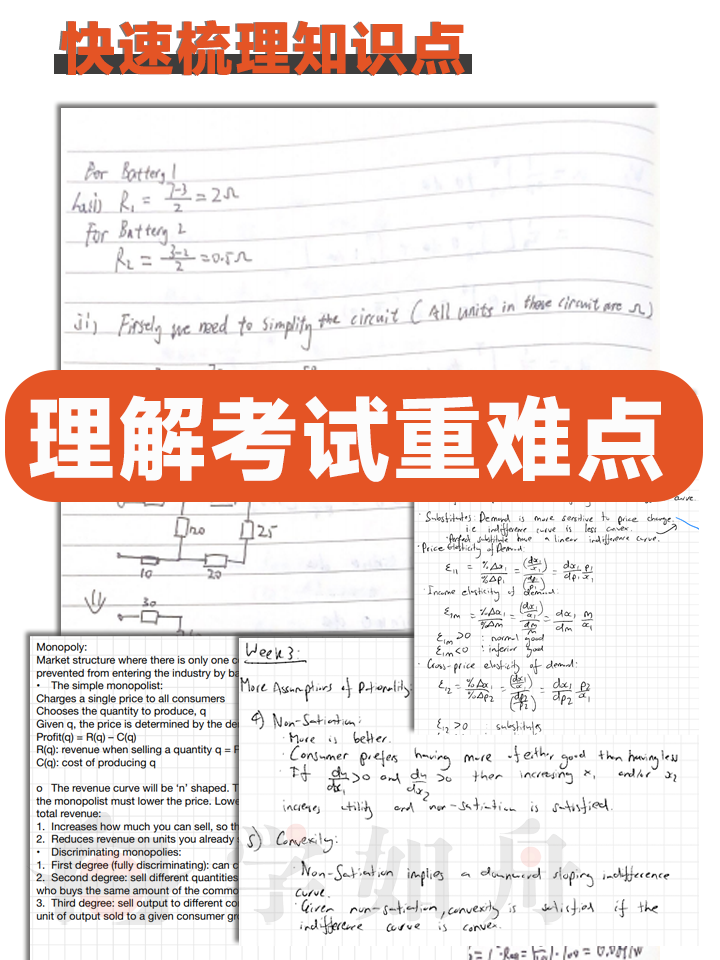 快速梳理知识点
For Battery 1
R₁ = 7-3/2 = 2Ω
For Battery 2
R₂ = 3-2/2 = 0.5Ω
ii) Firsely we need to simplify the circuit ( All units in these circuit are Ω)
理解考试重难点
120 25
10 20
30
curve.
· Substitutes: Demand is more sensitive to price change,
i.e indifference curve is less convex.
· Perfect substitute have a linear indifference curve.
· Price elasticity of Demand:
ε₁₁ = %Δx₁/%Δp₁ = (dx₁/x₁)/(dp₁/p₁) = dx₁/dp₁ p₁/x₁
· Income elasticity of demand:
ε₁m = %Δx₁/%Δm = (dx₁/x₁)/(dm/m) = dx₁/dm m/x₁
ε₁m >0 : normal good
ε₁m <0 : inferior good
· Cross-price elasticity of demand:
ε₁₂ = %Δx₁/%Δp₂ = (dx₁/x₁)/(dp₂/p₂) = dx₁/dp₂ p₂/x₁
ε₁₂ >0 : substitutes
Monopoly:
Market structure where there is only one
prevented from entering the industry by
• The simple monopolist:
Charges a single price to all consumers
Chooses the quantity to produce, q
Given q, the price is determined by the
Profit(q) = R(q) – C(q)
R(q): revenue when selling a quantity q =
C(q): cost of producing q
o The revenue curve will be ‘n’ shaped.
the monopolist must lower the price.
total revenue:
1. Increases how much you can sell, so
2. Reduces revenue on units you already
• Discriminating monopolies:
1. First degree (fully discriminating): can
2. Second degree: sell different quantities
who buys the same amount of the
3. Third degree: sell output to different
unit of output sold to a given consumer
Week 3:
More Assumptions of Rationality:
4) Non-Satiation:
· More is better.
· Consumer prefers having more of either good than having less
· If du/dx₁ >0 and du/dx₂ >0 then increasing x₁ and/or x₂
increases utility and non-satiation is satisfied.
5) Convexity:
· Non-Satiation implies a downward sloping indifference
curve.
· Given non-satiation, convexity is satisfied if the
indifference curve is convex.
学如舟